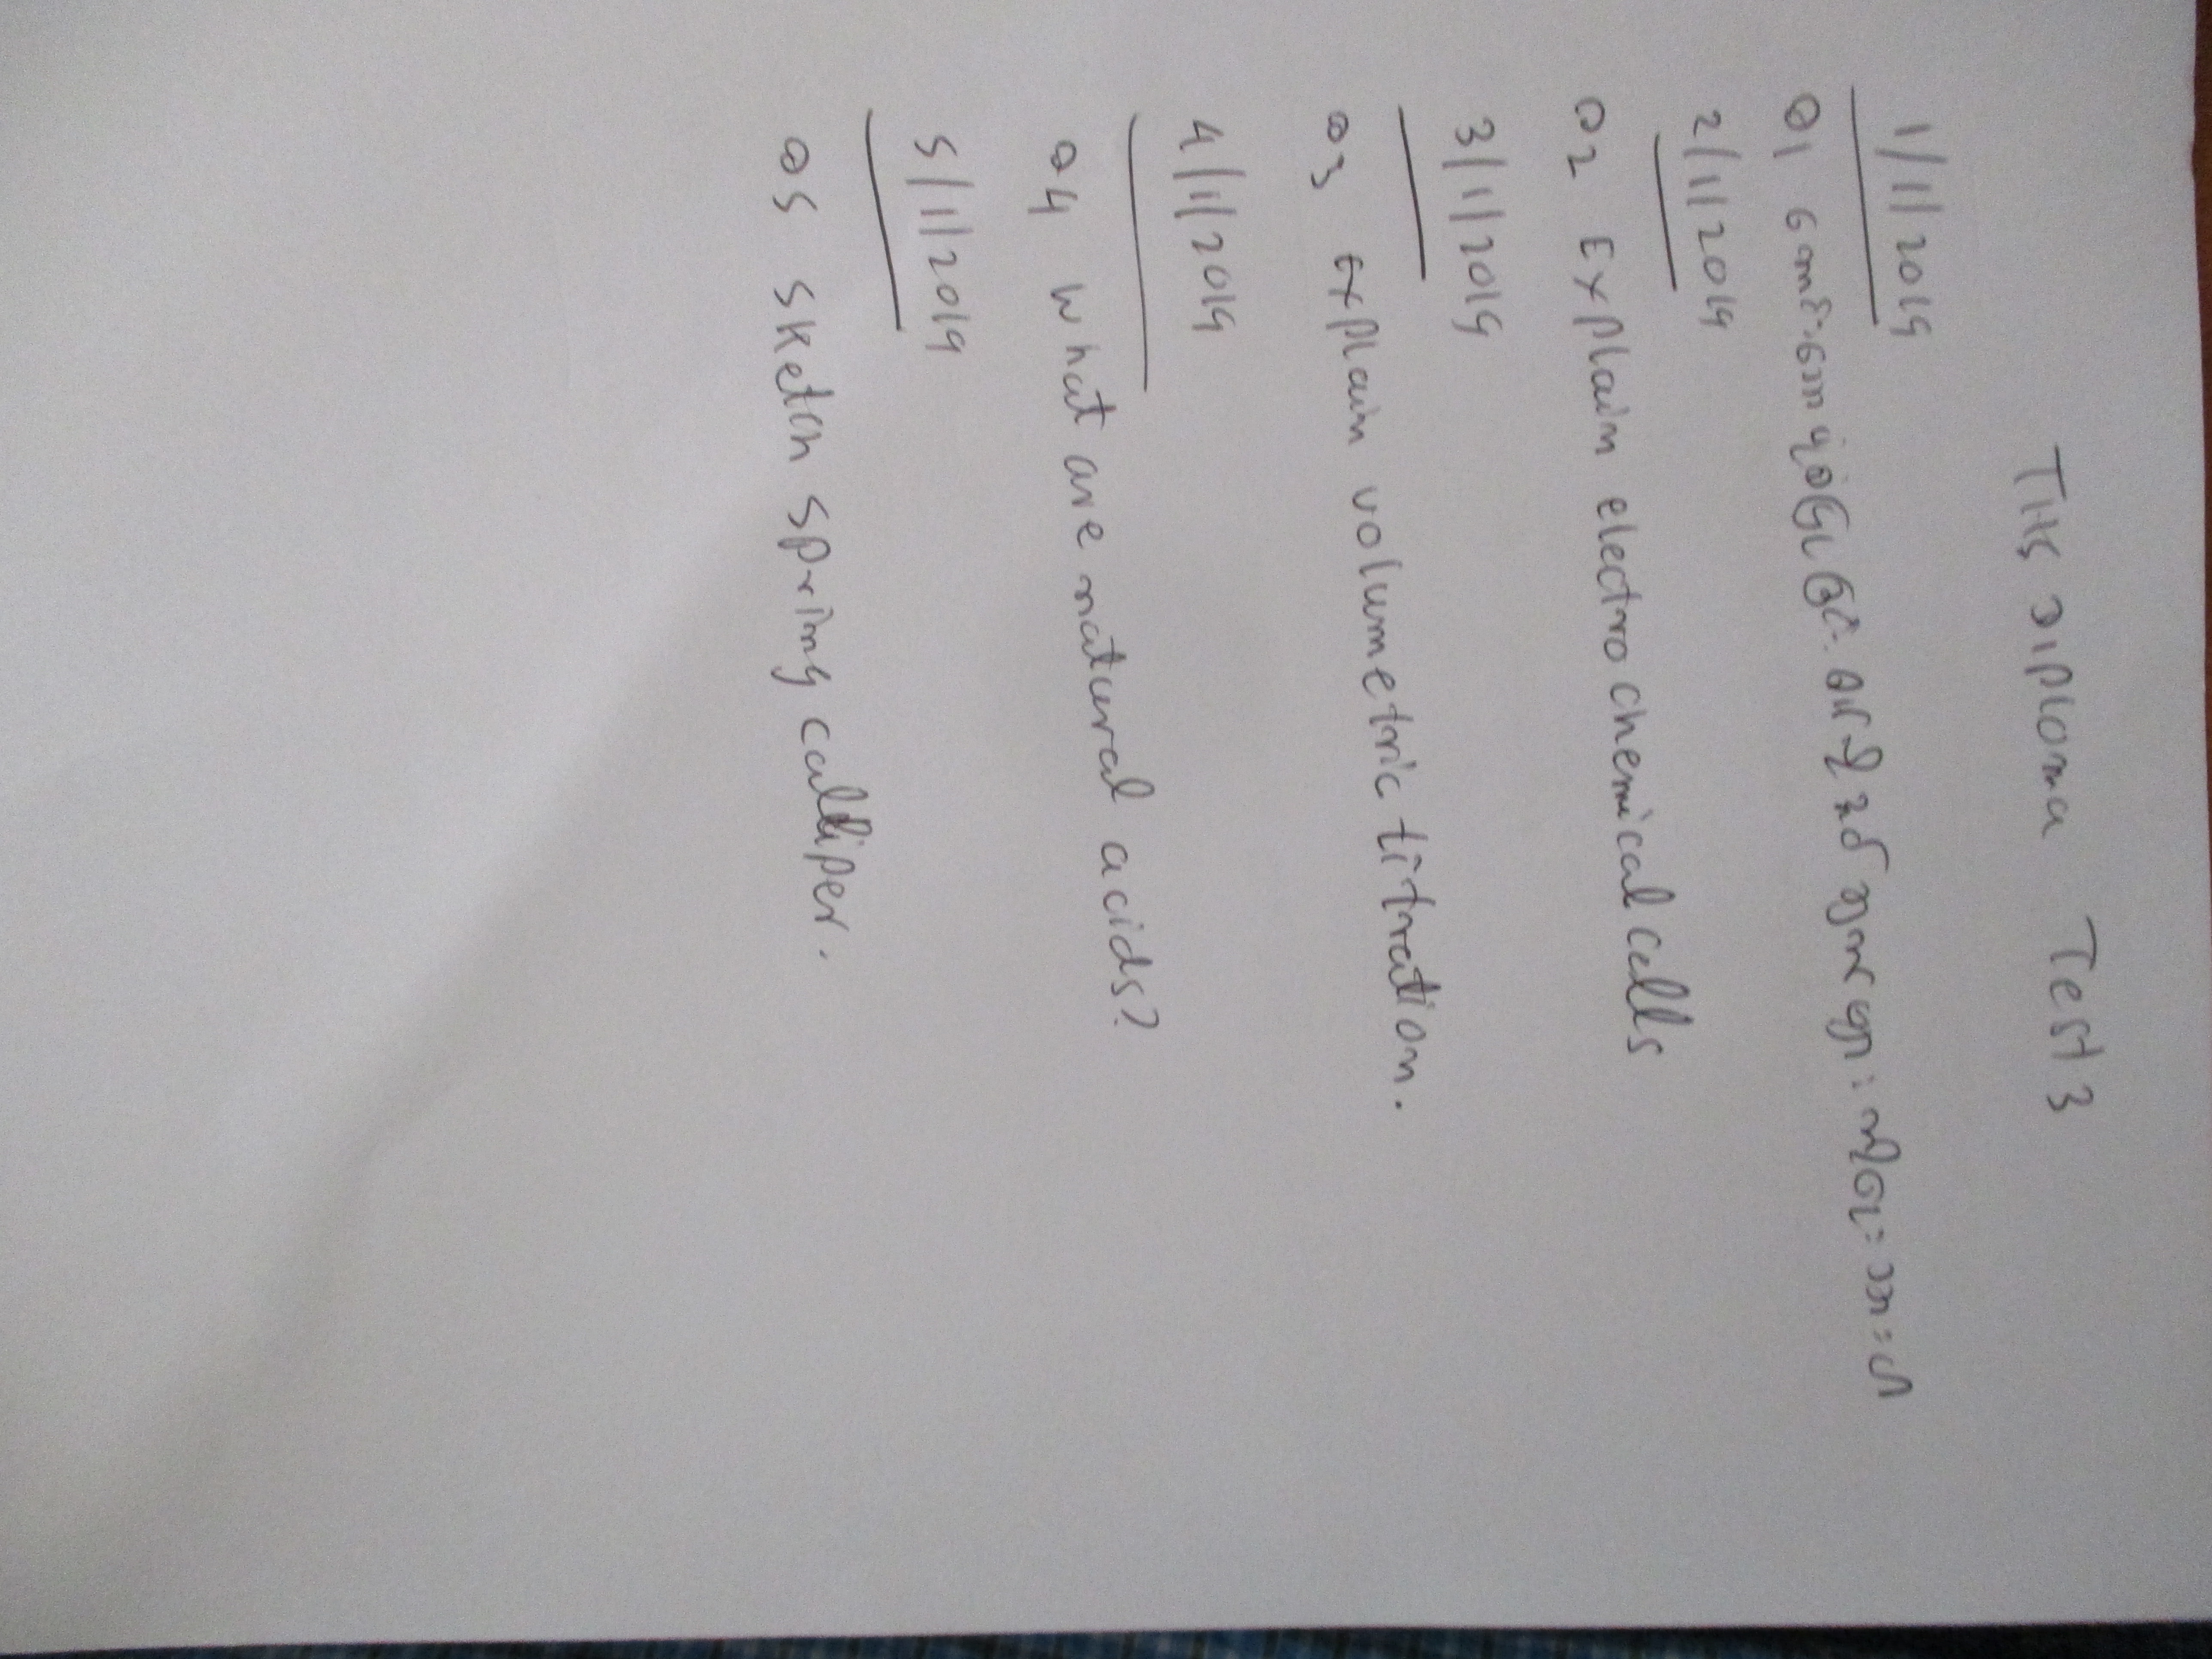 THS Diploma Test 3
1/1/2019
Q1
2/1/2019
Q2 Explain electro chemical cells
3/1/2019
Q3 Explain volumetric titration.
4/1/2019
Q4 What are natural acids?
5/1/2019
Q5 Sketch spring calliper.